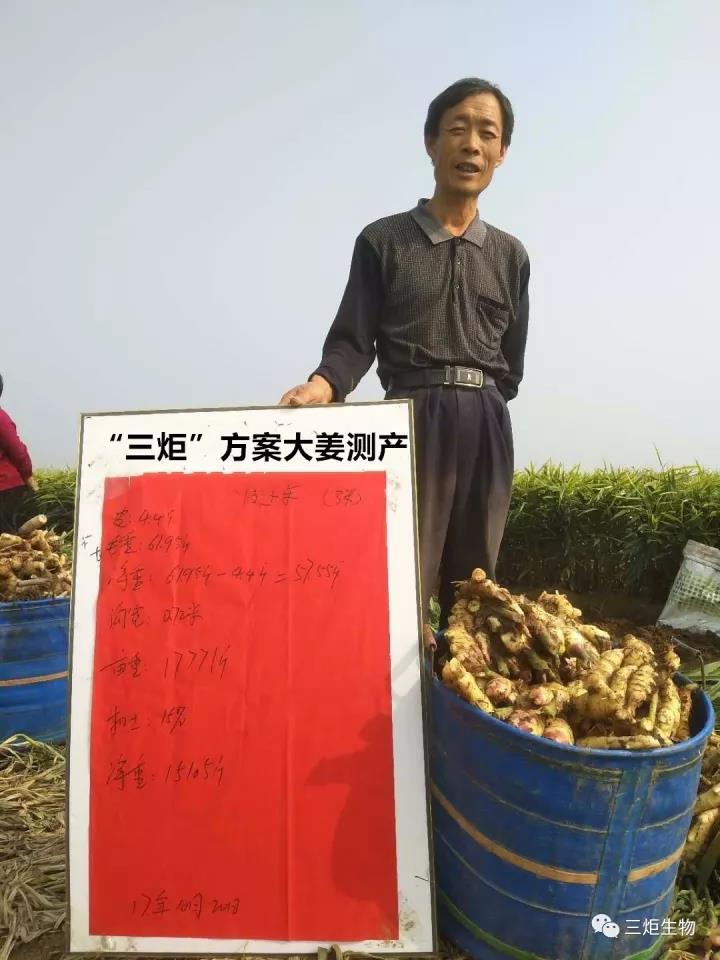 “三炬”方案大姜测产
(3米)
皮: 4.4斤
毛重: 61.95斤
净重: 61.95斤-4.4斤=57.55斤
沟宽: 0.72米
亩重: 17771斤
扣土: 15%
净重: 15105斤
17年10月20日
三炬生物